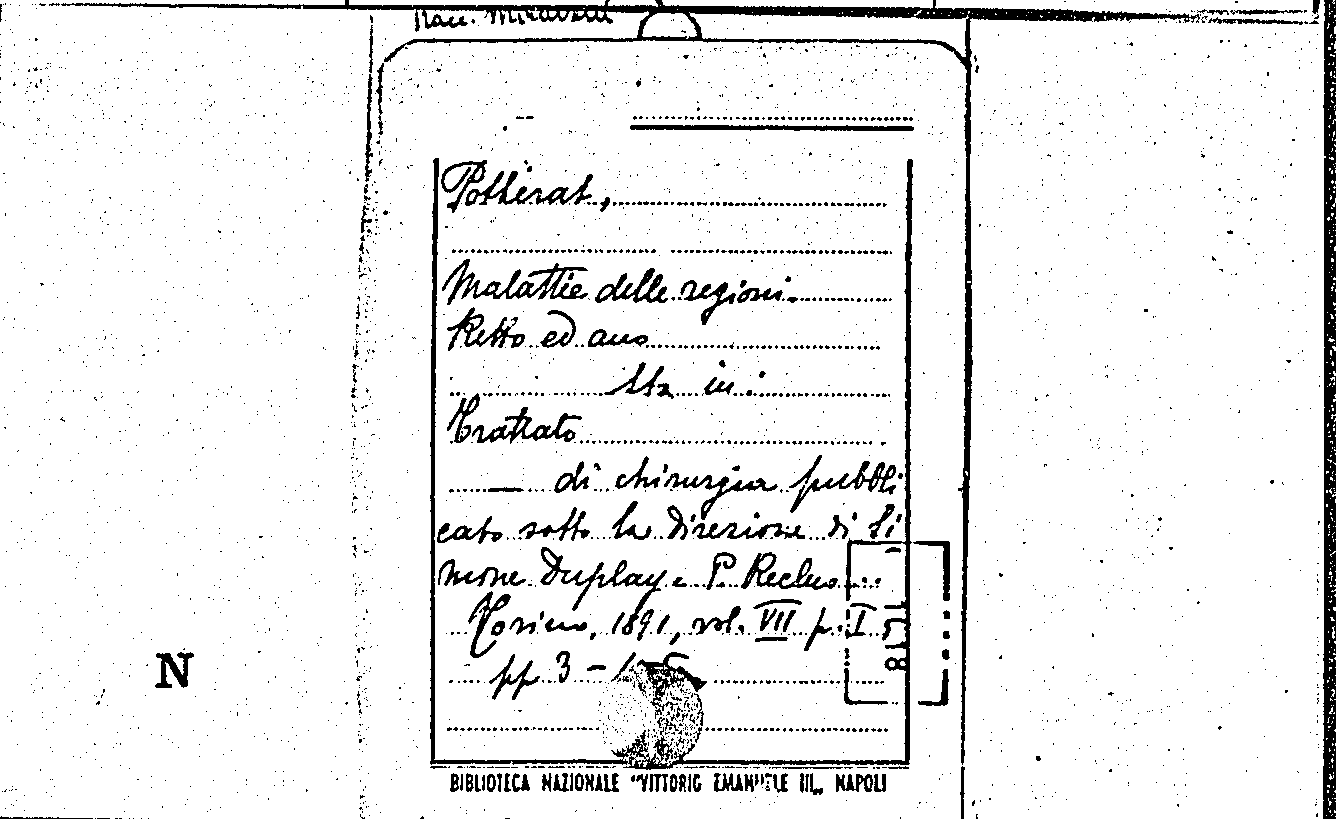 Racc.
Potherat,
Malattie delle regioni.
Retto ed ano
Sta in:
Trattato
— di chirurgia pubbli
cato sotto la direzione di Si
mone Duplay e P. Reclus ..
Torino, 1891, vol. VII p. I
pp 3 –
N
BIBLIOTECA NAZIONALE "VITTORIO EMANUELE III„ NAPOLI